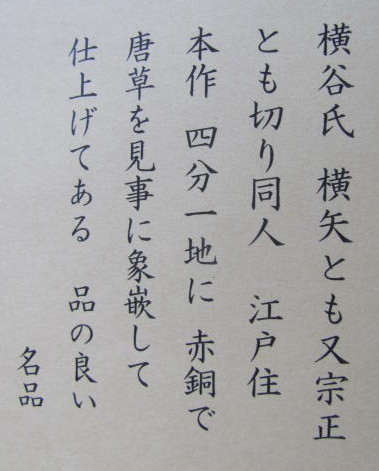 横谷氏　横矢とも又宗正
とも切り同人　江戸住
本作　四分一地に　赤銅で
唐草を見事に象嵌して
仕上げてある　品の良い
名品